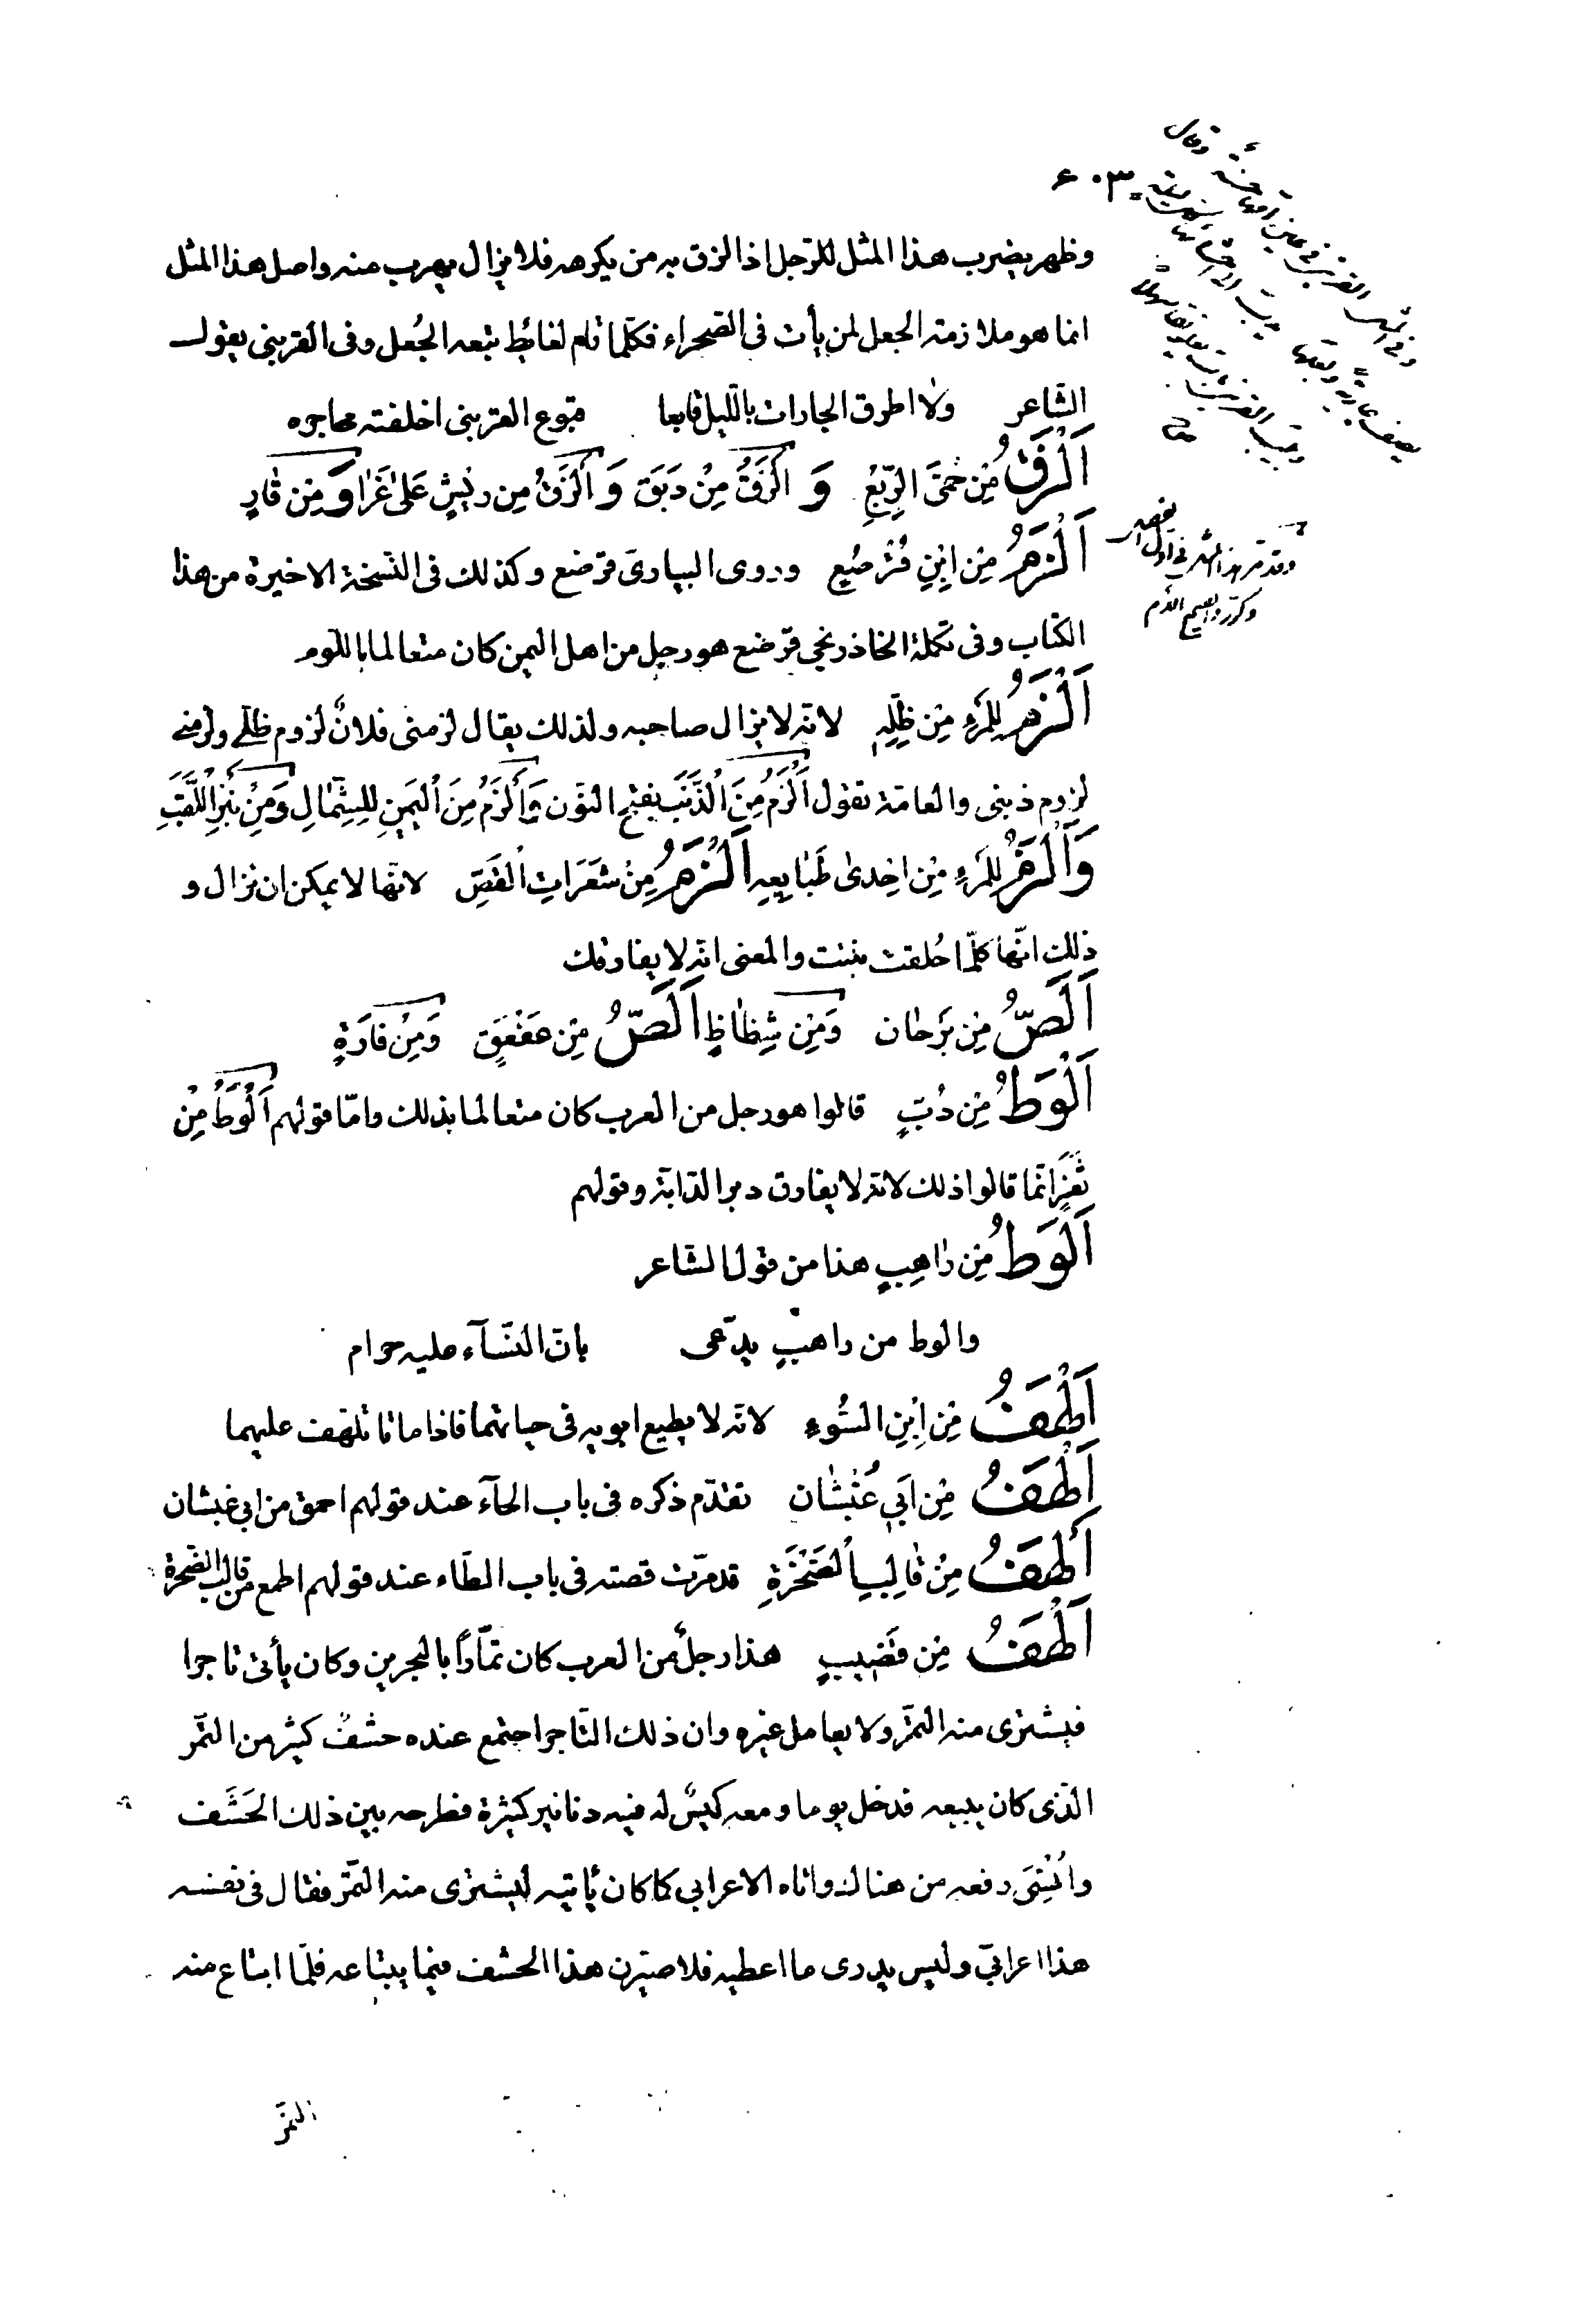 ٤٠٣
وظهر يضرب هذا المثل للرّجل اذا لزق به من يكرهه فلا يزال يهرب منه واصل هذا المثل
انما هو ملازمة الجعل لمن يأت فى الصّحراء فكلّما قام لغائط يتبعه الجُعل وفى القرنبى يقول
الشّاعر ولا اطرق الجارات باللّيل قابعا قبوع القرنبى اخلفته محاجره
اَلْزَقُ مِن حُمَّى الرِّبْعِ وَ اَلْزَقُ مِنْ دَبَقٍ وَ اَلْزَقُ مِن رِيْشٍ عَلىٰ غَرَاءٍ وَ مِن قَارٍ
اَلْزَمُ مِن ابْنِ قُرْضُعٍ وروى البيارىّ قرضع وكذلك فى النّسخة الاخيرة من هذا
الكتاب وفى تكملة الخارزنجى قرضع هو رجل من اهل اليمن كان متعالما باللّوم
اَلْزَمُ لِلمَرْءِ مِن ظِلِّهِ لانّه لا يزال صاحبه ولذلك يقال لزمنى فلانٌ لزوم ظلّى ولزمنى
لزوم ذنبى والعامّة تقول اَلْزَمُ مِنَ الذَّنَبِ بفتح النّون وَاَلْزَمُ مِنَ الْيَمِينِ لِلشِّمَالِ وَمِنْ نَبْزِ اللَّقَبِ
وَاَلْزَمُ لِلمَرْءِ مِن اِحْدىٰ طَبَايِعِهِ اَلْزَمُ مِنْ شَعَرَاتِ الْقَصِّ لانّها لا يمكن ان تزال و
ذلك انّها كلّما حُلقت نبتت والمعنى انّه لا يفارقك
اَلَصُّ مِن بَرْجَان وَمِن شِظَاظٍ اَلَصُّ مِن عَقْعَقٍ وَمِنْ فَارَةٍ
اَلْوَطُ مِن دُبٍّ قالوا هو رجل من العرب كان متعالما بذلك وامّا قولهم اَلْوَطُ مِنْ
ثَفَرٍ انّما قالوا ذلك لانّه لا يفارق دبر الدّابّة وقولهم
اَلْوَطُ مِن رَاهِبٍ هذا من قول الشّاعر
والوط من راهبٍ يدّعى بانّ النّسآء عليه حرام
اَلْهَفُ مِن اِبْنِ السُّوءِ لانّه لا يطيع ابويه فى حياتهما فاذا ماتا تلهّف عليهما
اَلْهَفُ مِن اَبِي غَبْشَان تقدّم ذكره فى باب الحآء عند قولهم احمق من ابى غبشان
اَلْهَفُ مِنْ قَالِبِ الصَّخْرَةِ قد مرّت قصّته فى باب الطّاء عند قولهم اطمع من قالب الصّخرة
اَلْهَفُ مِن قَضِيبٍ هذا رجلٌ من العرب كان تمّارًا بالبحرين وكان يأتى تاجرا
فيشترى منه التّمر ولا يعامل غيره وان ذلك التّاجر اجتمع عنده حشفٌ كثير من التّمر
الّذى كان يبيعه فدخل يوما ومعه كيسٌ له فيه دنانير كثيرة فطرحه بين ذلك الحَشَف
واُنْسِىَ رفعه من هناك واتاه الاعرابى كما كان يأتيه ليشترى منه التّمر فقال فى نفسه
هذا اعرابىّ وليس يدرى ما اعطيه فلاصيّرن هذا الحشف فيما يبتاعه فلمّا ابتاع منه
التمر